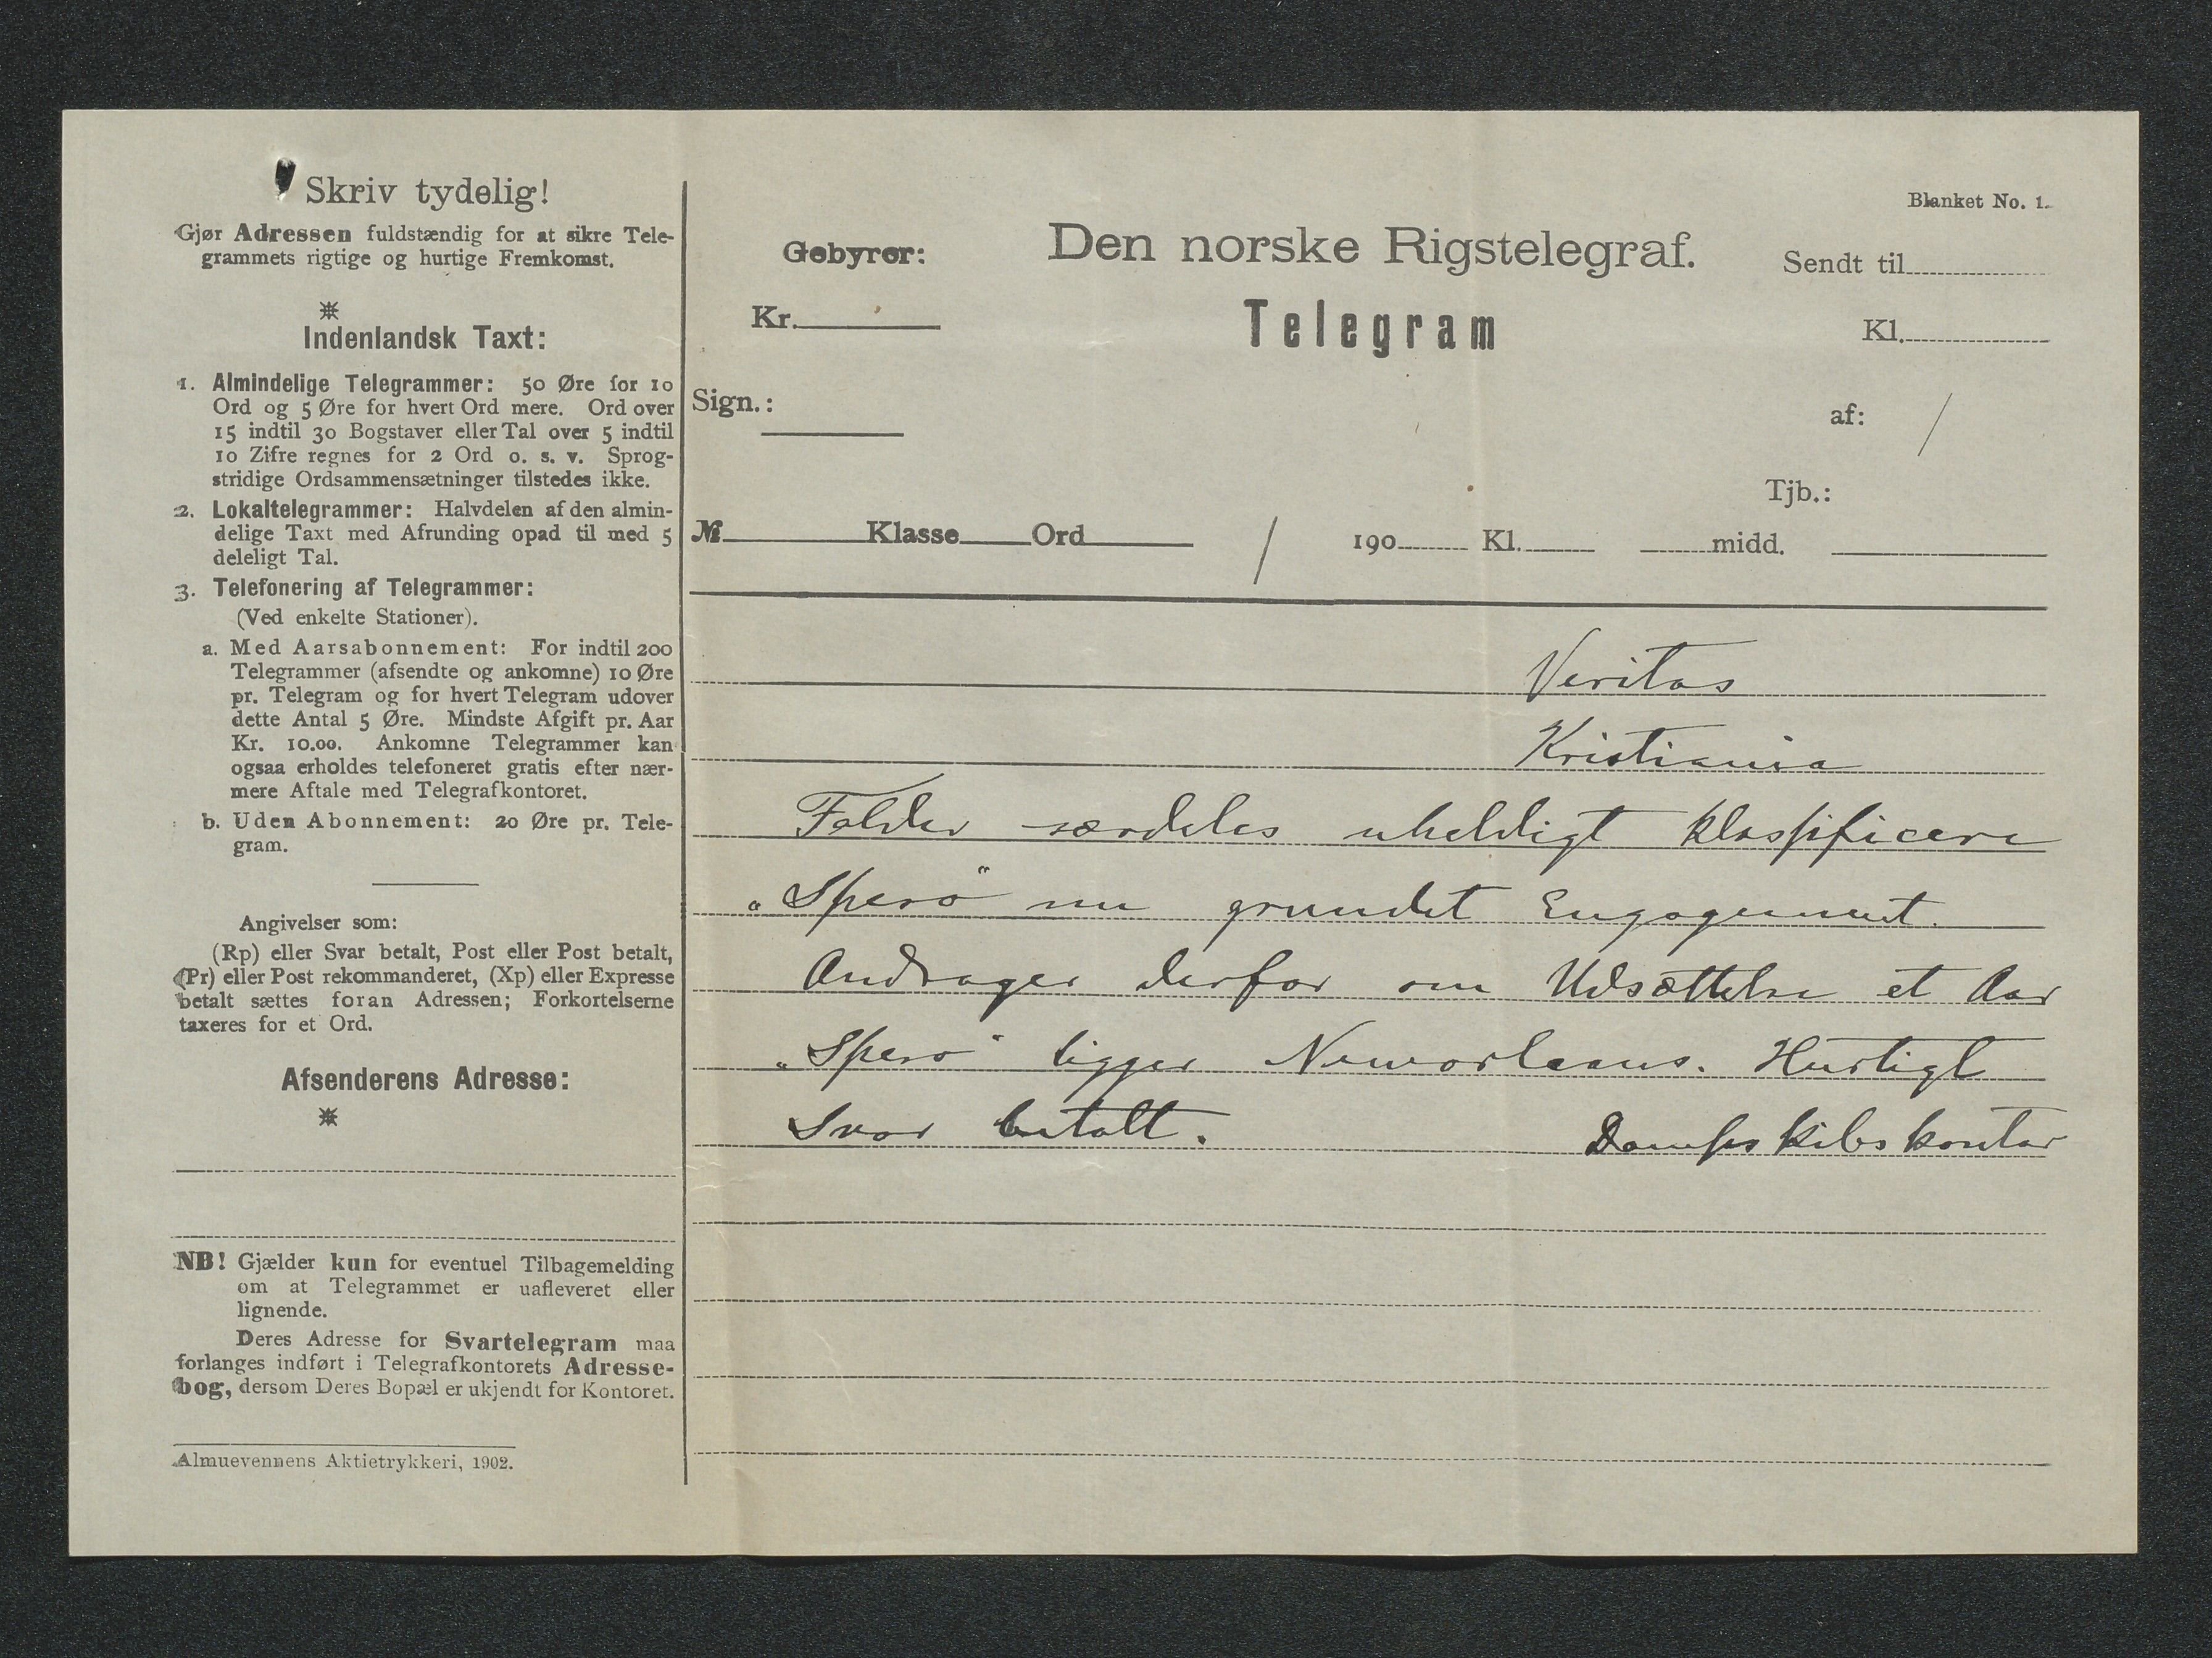 Skriv tydelig!
Gjør Adressen fuldstændig for at sikre Tele-
grammets rigtige og hurtige Fremkomst.
Indenlandsk Taxt:
1. Almindelige Telegrammer: 50 Øre for 10
Ord og 5 Øre for hvert Ord mere. Ord over
15 indtil 30 Bogstaver eller Tal over 5 indtil
10 Zifre regnes for 2 Ord o. s. v. Sprog-
stridige Ordsammensætninger tilstedes ikke.
2. Lokaltelegrammer: Halvdelen af den almin-
delige Taxt med Afrunding opad til med 5
deleligt Tal.
3. Telefonering af Telegrammer:
(Ved enkelte Stationer).
a. Med Aarsabonnement: For indtil 200
Telegrammer (afsendte og ankomne) 10 Øre
pr. Telegram og for hvert Telegram udover
dette Antal 5 Øre. Mindste Afgift pr. Aar
Kr. 10.00. Ankomne Telegrammer kan
ogsaa erholdes telefoneret gratis efter nær-
mere Aftale med Telegrafkontoret.
b. Uden Abonnement: 20 Øre pr. Tele-
gram.
Angivelser som:
(Rp) eller Svar betalt, Post eller Post betalt,
(Pr) eller Post rekommanderet, (Xp) eller Expresse
betalt sættes foran Adressen; Forkortelserne
taxeres for et Ord.
Afsenderens Adresse:
NB! Gjælder kun for eventuel Tilbagemelding
om at Telegrammet er uafleveret eller
lignende.
Deres Adresse for Svartelegram maa
forlanges indført i Telegrafkontorets Adresse-
bog, dersom Deres Bopæl er ukjendt for Kontoret.
Almuevennens Aktietrykkeri, 1902.
Blanket No. 1.
Gebyrer: Den norske Rigstelegraf. Sendt til
Kr. Telegram Kl.
Sign.: af: /
Tjb.:
№ Klasse Ord / 190 Kl. midd.
Veritas
Kristiania
Falder særdeles uheldigt klassificere
"Spero" nu grundet Engagement.
Andrager derfor om Udsættelse et Aar
"Spero" ligger Neworleans. Hurtigt
Svar betalt. Dampskibskontor